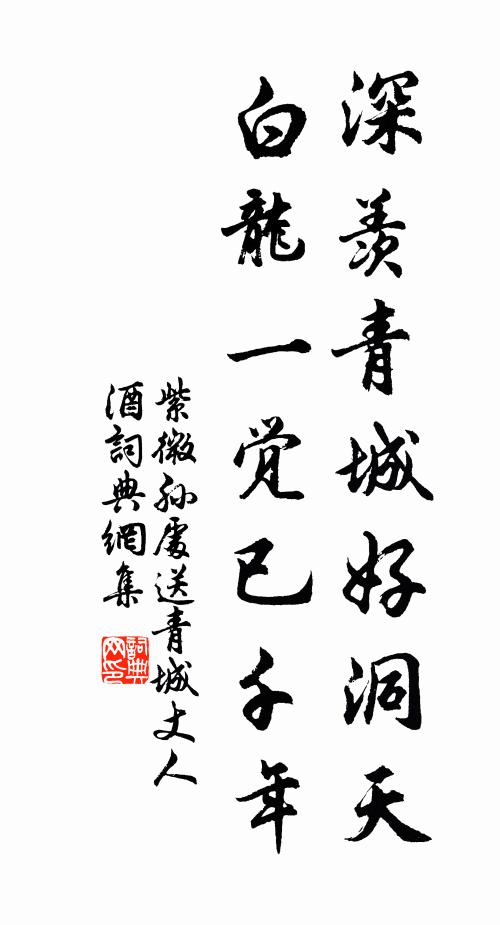 深羨青城好洞天
白龍一覺已千年
紫微孫處送青城丈人
酒詞典網集
詞典
网印